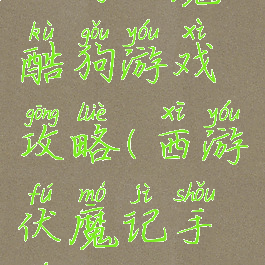 kù gǒu yóu xì
酷狗游戏
gōng lüè xī yóu
攻略(西游
fú mó jì shǒu
伏魔记手